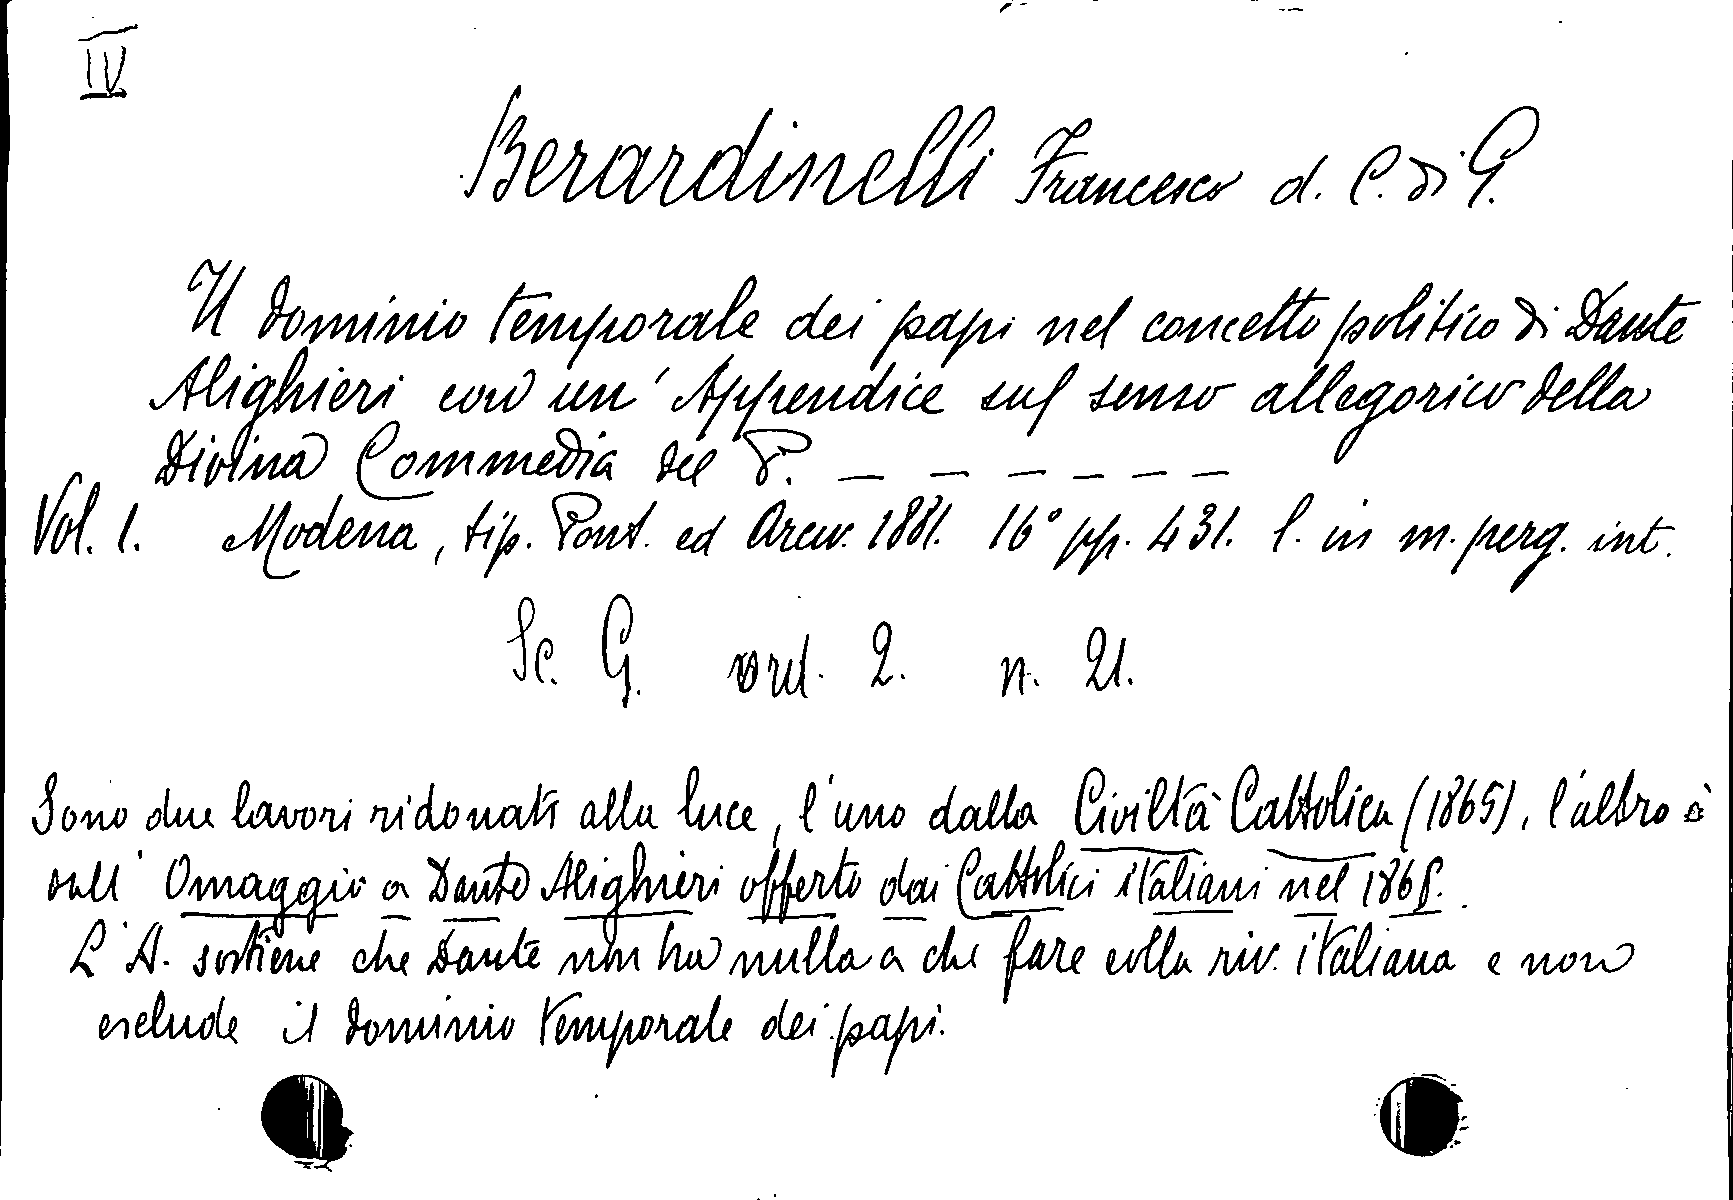 IV
Berardinelli Francesco d. C. di G.
Il dominio temporale dei papi nel concetto politico di Dante
Alighieri con un' Appendice sul senso allegorico della
Divina Commedia del P. — — — — — —
Vol. 1. Modena, tip. Pont. ed Arciv. 1881. 16° pp. 431. l. in m. perg. int.
Sc. G. ord. 2. n. 21.
Sono due lavori ridonati alla luce, l'uno dalla Civiltà Cattolica (1865), l'altro è
sull' Omaggio a Dante Alighieri offerto dai Cattolici italiani nel 1865.
L'A. sostiene che Dante non ha nulla a che fare colla riv. italiana e non
esclude il dominio temporale dei papi.